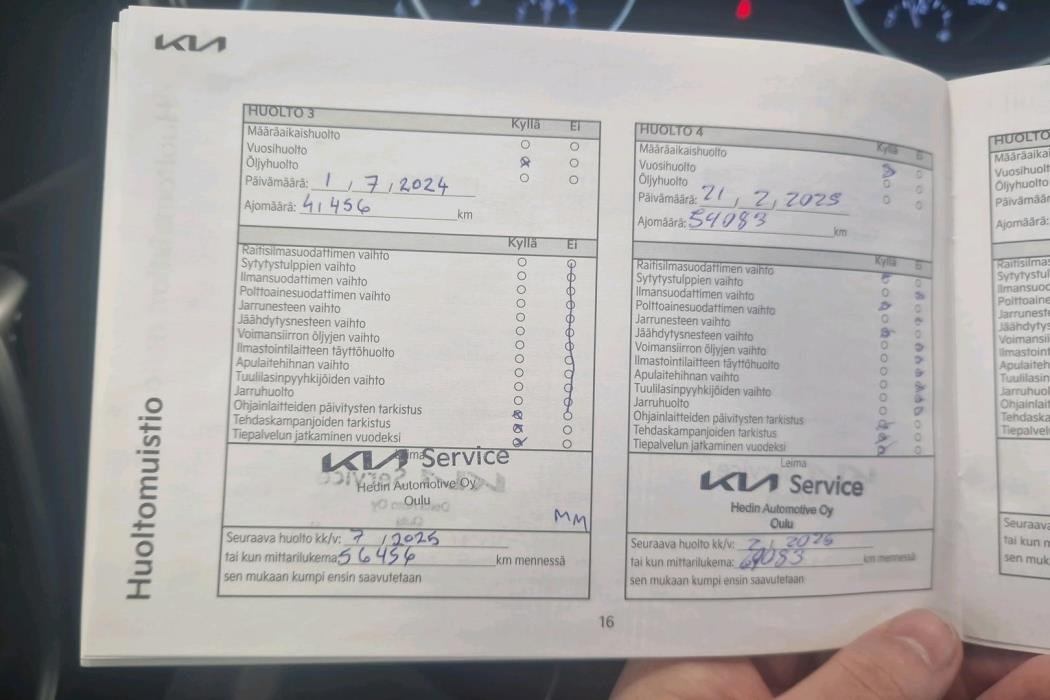 KIA
Huoltomuistio
HUOLTO 3
Kyllä Ei
Määräaikaishuolto
Vuosihuolto
Öljyhuolto
Päivämäärä: 1 / 7 / 2024
Ajomäärä: 41 456 km
Kyllä Ei
Raitisilmasuodattimen vaihto
Sytytystulppien vaihto
Ilmansuodattimen vaihto
Polttoainesuodattimen vaihto
Jarrunesteen vaihto
Jäähdytysnesteen vaihto
Voimansiirron öljyjen vaihto
Ilmastointilaitteen täyttöhuolto
Apulaitehihnan vaihto
Tuulilasinpyyhkijöiden vaihto
Jarruhuolto
Ohjainlaitteiden päivitysten tarkistus
Tehdaskampanjoiden tarkistus
Tiepalvelun jatkaminen vuodeksi
Leima
KIA Service
Hedin Automotive Oy
Oulu
MM
Seuraava huolto kk/v: 7 / 2025
tai kun mittarilukema: 56456 km mennessä
sen mukaan kumpi ensin saavutetaan
HUOLTO 4
Kyllä Ei
Määräaikaishuolto
Vuosihuolto
Öljyhuolto
Päivämäärä: 21 / 2 / 2025
Ajomäärä: 54083 km
Kyllä Ei
Raitisilmasuodattimen vaihto
Sytytystulppien vaihto
Ilmansuodattimen vaihto
Polttoainesuodattimen vaihto
Jarrunesteen vaihto
Jäähdytysnesteen vaihto
Voimansiirron öljyjen vaihto
Ilmastointilaitteen täyttöhuolto
Apulaitehihnan vaihto
Tuulilasinpyyhkijöiden vaihto
Jarruhuolto
Ohjainlaitteiden päivitysten tarkistus
Tehdaskampanjoiden tarkistus
Tiepalvelun jatkaminen vuodeksi
Leima
KIA Service
Hedin Automotive Oy
Oulu
Seuraava huolto kk/v: 2 / 2026
tai kun mittarilukema: 69083 km mennessä
sen mukaan kumpi ensin saavutetaan
16
HUOLTO
Määräaikai
Vuosihuolt
Öljyhuolto
Päivämäär
Ajomäärä:
Raitisilmas
Sytytystul
Ilmansuod
Polttoaine
Jarrunest
Jäähdytys
Voimansii
Ilmastoint
Apulaiteh
Tuulilasin
Jarruhuol
Ohjainlait
Tehdaska
Tiepalvel
Seuraava
tai kun m
sen muk